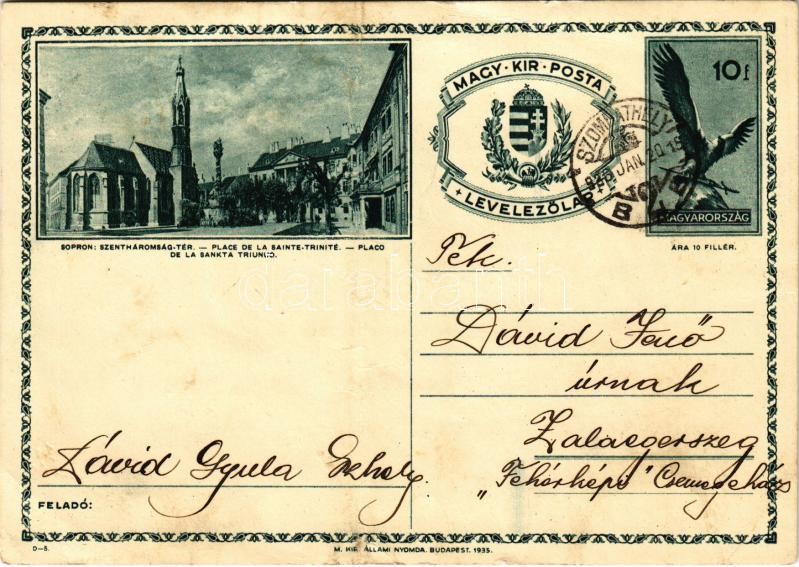 MAGY · KIR · POSTA
LEVELEZŐLAP
10 f
MAGYARORSZÁG
ÁRA 10 FILLÉR.
SZOMBATHELY
JAN. 20
SOPRON: SZENTHÁROMSÁG-TÉR. — PLACE DE LA SAINTE-TRINITÉ. — PLACO
DE LA SANKTA TRIUNUO.
Tek.
Dávid Jenő
úrnak
Zalaegerszeg
„Fehérképű" Csemegeház
Dávid Gyula Szhely.
FELADÓ:
D—5.
M. KIR. ÁLLAMI NYOMDA. BUDAPEST. 1935.
darabanth